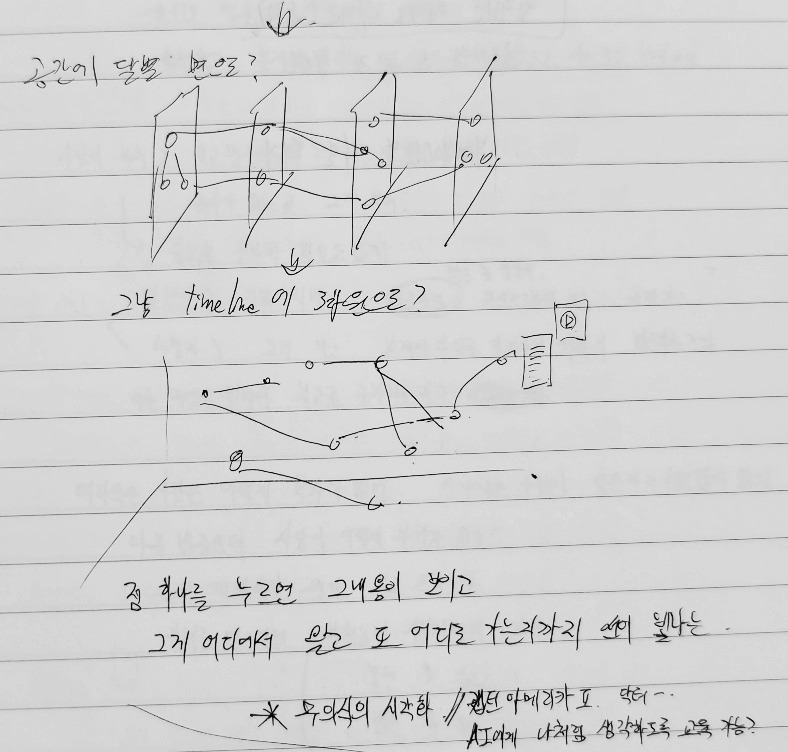 공간에 달별 면으로?
그냥 timeline에 3차원으로?
점 하나를 누르면 그 내용이 보이고
그게 어디에서 왔고 또 어디로 가는지까지 선이 빛나는.
* 무의식의 시각화 // 캡틴아메리카 포. 닥터…
AI에게 나처럼 생각하도록 교육 가능?